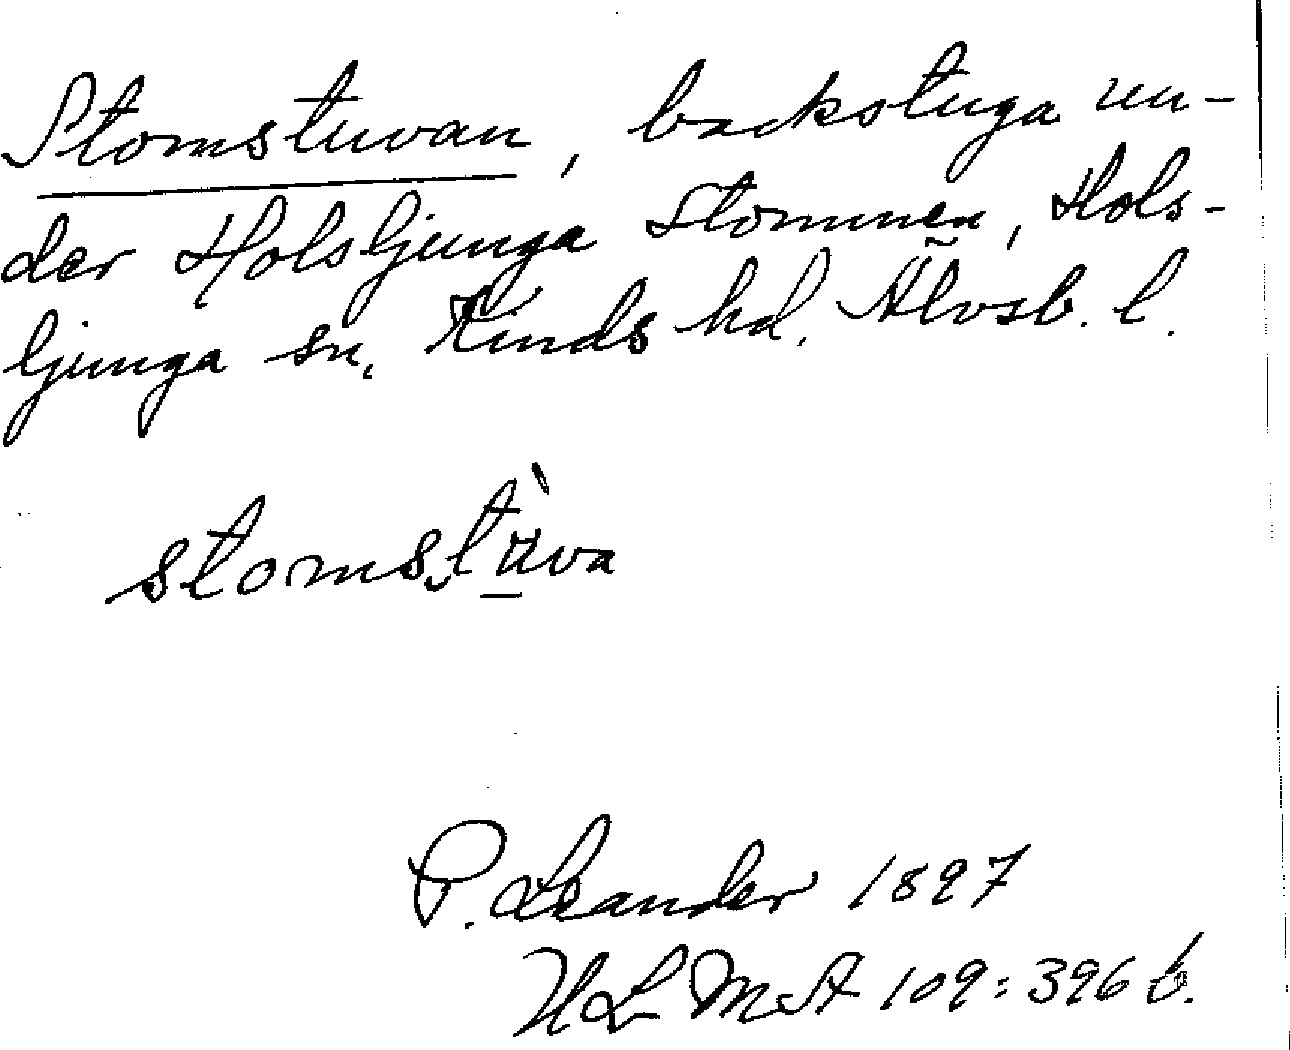 Stomstuvan, backstuga un-
der Holsljunga Stommen, Hols-
ljunga sn. Kinds hd. Älvsb. l.
stomstùva
P. Leander 1897
ULMA 109:396 b.